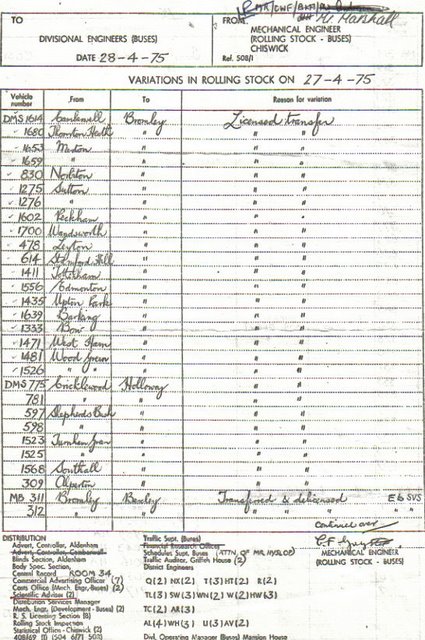 TO
FROM Mr. Marshall
DIVISIONAL ENGINEERS (BUSES)
MECHANICAL ENGINEER
(ROLLING STOCK - BUSES)
CHISWICK
DATE 28-4-75
Ref. 508/1
VARIATIONS IN ROLLING STOCK ON 27-4-75
Vehicle number From To Reason for variation
DMS 1614 Camberwell Bromley Licensed transfer
✓ 1680 Thornton Heath " " "
✓ 1653 Merton " " "
✓ 1659 " " " "
✓ 830 Norbiton " " "
✓ 1275 Sutton " " "
✓ 1276 " " " "
✓ 1602 Peckham " " "
✓ 1700 Wandsworth " " "
✓ 478 Leyton " " "
✓ 614 Stamford Hill " " "
✓ 1411 Tottenham " " "
✓ 1556 Edmonton " " "
✓ 1435 Upton Park " " "
✓ 1639 Barking " " "
✓ 1333 Bow " " "
✓ 1471 West Ham " " "
✓ 1481 Wood Green " " "
✓ 1526 " " " " "
DMS 775 Cricklewood Holloway " "
781 " " " "
597 Shepherds Bush " " "
598 " " " "
1523 Turnham Green " " "
1525 " " " "
1568 Southall " " "
309 Alperton " " "
MB 311 Bromley Bexley Transferred & delicensed E to SVS
312 " " " " " "
Continued over
DISTRIBUTION
Advert. Controller, Aldenham
Advert. Controller, Camberwell
Blinds Section, Aldenham
Body Spec. Section,
Central Record ROOM 34
Commercial Advertising Officer (7)
Costs Office (Mech. Engr. Buses) (2)
Scientific Advisor (2)
Distribution Services Manager
Mech. Engr. (Development - Buses) (2)
R. S. Licensing Section (8)
Rolling Stock Inspection
Statistical Office - Chiswick (2)
Traffic Supt. (Buses)
Financial Research Officer
Schedules Supt. Buses (ATTN. OF MR HYSLOP)
Traffic Auditor, Griffith House (2)
District Engineers
Q(2) NX(2) T(3) HT(2) R(2)
TL(3) SW(3) WN(2) W(2) HW(3)
TC(2) AR(3)
AL(4) WH(3) U(3) AV(2)
Divl. Operating Manager (Buses) Mansion House
MECHANICAL ENGINEER
(ROLLING STOCK - BUSES)